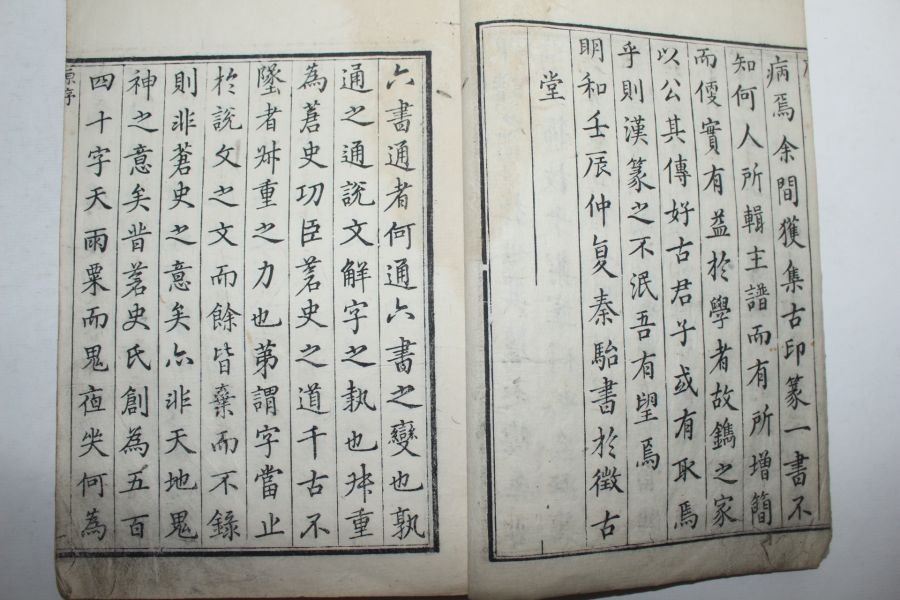 病焉余間獲集古印篆一書不
知何人所輯主譜而有所增簡
而便實有益於學者故鐫之家
以公其傳好古君子或有取焉
乎則漢篆之不泯吾有望焉
明和壬辰仲夏秦駘書於徴古
堂
六書通者何通六書之變也孰
通之通說文解字之執也叔重
為蒼史功臣蒼史之道千古不
墜者叔重之力也第謂字當止
於說文之文而餘皆棄而不錄
則非蒼史之意矣亦非天地鬼
神之意矣昔蒼史氏創為五百
四十字天雨粟而鬼夜哭何為
原序